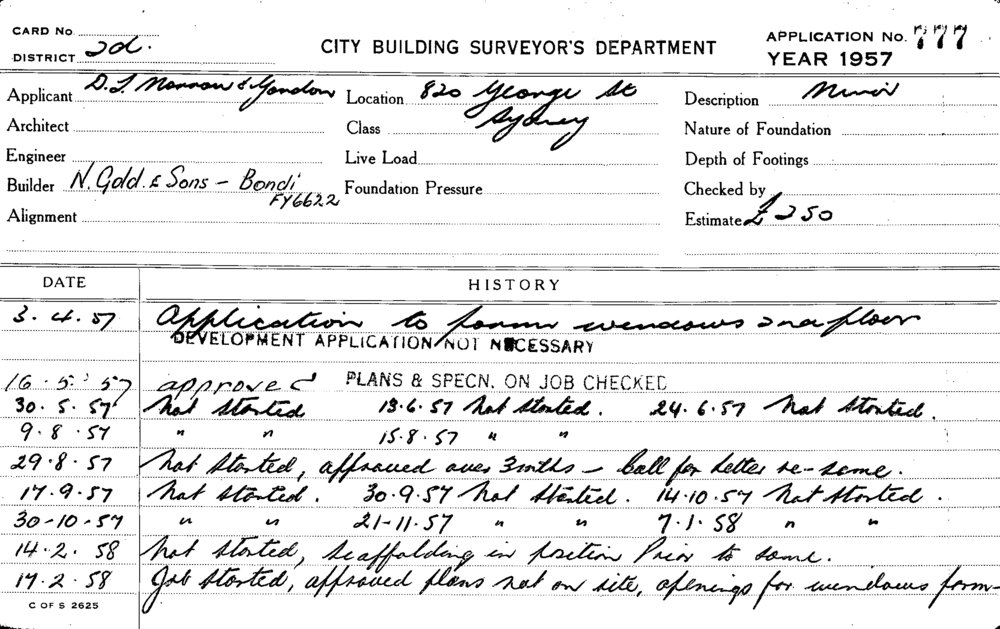 CARD No.
DISTRICT 2d.
CITY BUILDING SURVEYOR'S DEPARTMENT
APPLICATION No. 777
YEAR 1957
Applicant D. T. Morrow & Gordon Location 820 George St Description Minor
Architect Class Sydney Nature of Foundation
Engineer Live Load Depth of Footings
Builder N. Gold. & Sons - Bondi Foundation Pressure Checked by
FY6622
Alignment Estimate £250
DATE HISTORY
3.4.57 Application to form windows 2nd floor
DEVELOPMENT APPLICATION NOT NECESSARY
16.5.57 approved PLANS & SPECN. ON JOB CHECKED
30.5.57 Not started 13.6.57 Not started. 24.6.57 Not started.
9.8.57 " " 15.8.57 " "
29.8.57 Not started, approved over 3 mths - Call for letter re-same.
17.9.57 Not started. 30.9.57 Not started. 14.10.57 Not started.
30-10-57 " " 21-11-57 " " 7.1.58 " "
14.2.58 Not started, scaffolding in position Prior to same.
17.2.58 Job started, approved plans not on site, openings for windows form-
C OF S 2625